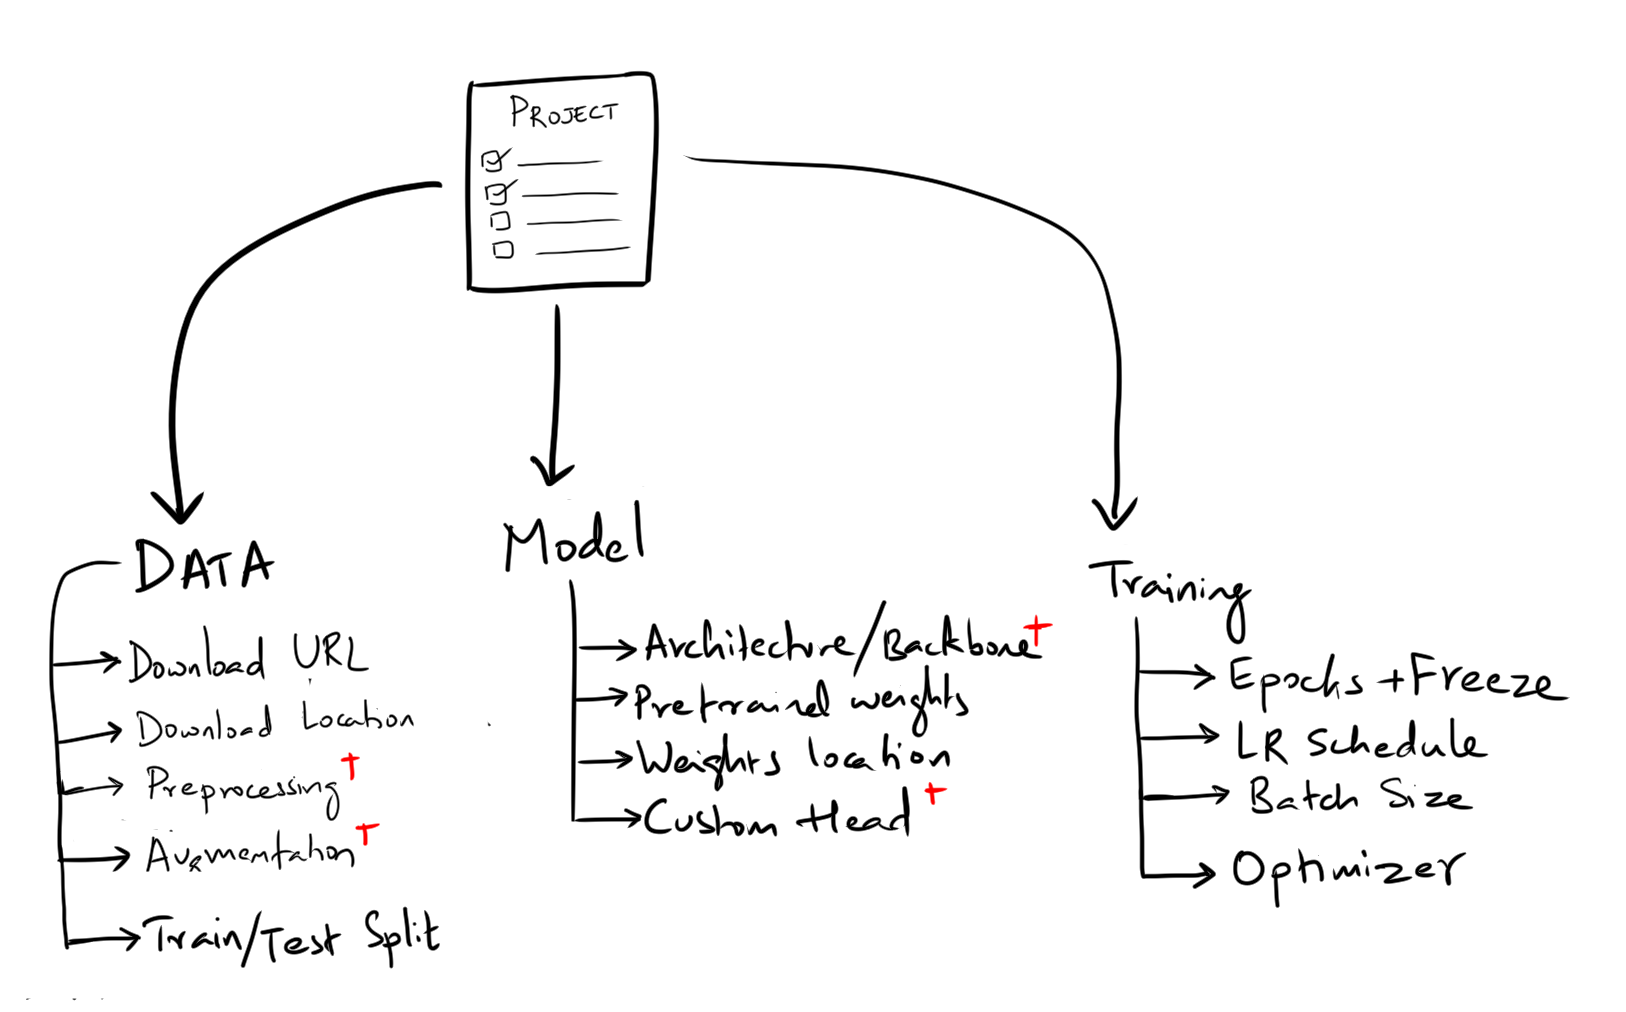 PROJECT
DATA
Download URL
Download Location
Preprocessing†
Augmentation†
Train/Test Split
Model
Architecture/Backbone†
Pretrained weights
Weights location
Custom Head†
Training
Epochs + Freeze
LR Schedule
Batch Size
Optimizer